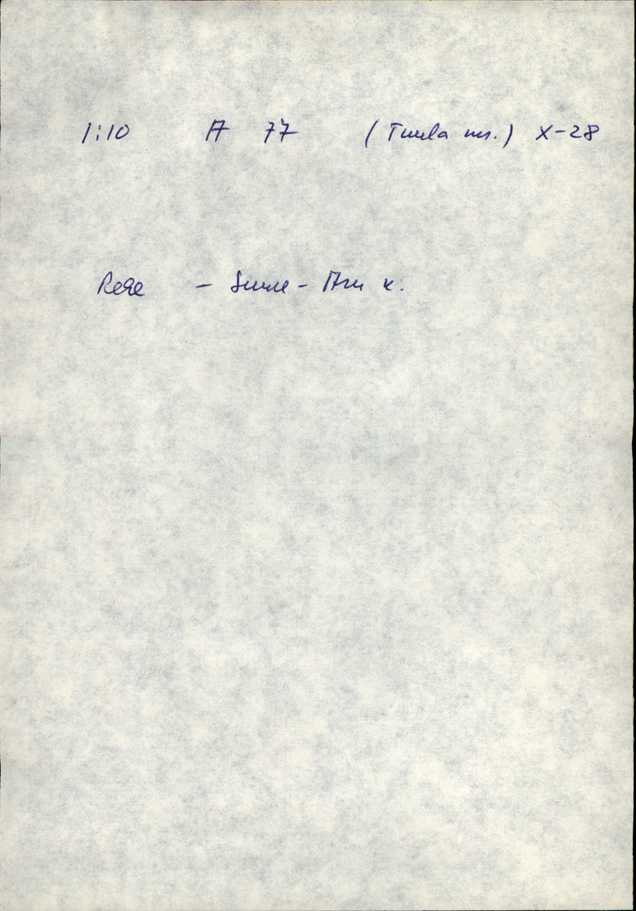 1:10 A 77 (Tuula ms.) X-28
Rege - Suure - Aru k.